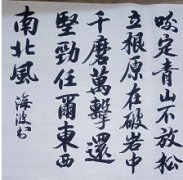 咬定青山不放松
立根原在破岩中
千磨萬擊還
堅勁任爾東西
南北風
海波书